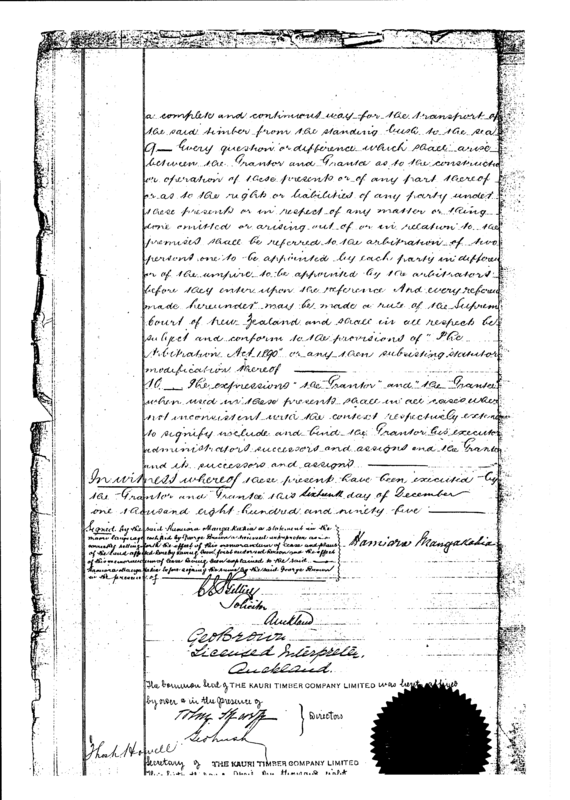 a complete and continuous way for the transport of
the said timber from the standing bush to the sea
9 — Every question or difference which shall arise
between the Grantor and Grantee as to the constructi
or operation of these presents or of any part thereof
or as to the rights or liabilities of any party under
these presents or in respect of any matter or thing
done omitted or arising out of or in relation to the
premises shall be referred to the arbitration of two
persons one to be appointed by each party in differen
or of the umpire to be appointed by the arbitrators
before they enter upon the reference And every referen
made hereunder may be made a rule of the Suprem
Court of New Zealand and shall in all respects be
subject and conform to the provisions of "The
Arbitration Act 1890" or any then subsisting statutor
modification thereof
10 — The expressions "the Grantor" and "the Grantee"
when used in these presents shall in all cases when
not inconsistent with the context respectively exten
to signify include and bind the Grantor his executor
administrators successors and assigns and the Grante
and its successors and assigns
In witness whereof these present have been executed by
the Grantor and Grantee this sixteenth day of December
one thousand eight hundred and ninety five
Signed by the said Hamiora Mangakahia a statement in the
maori language certified by George Brown a licensed interpreter as
correctly setting forth the effect of this memorandum of lease and plans
of the land affected hereby having been first endorsed hereon and the effect
of the memorandum of lease having been explained to the said
Hamiora Mangakahia before signing the same by the said George Brown
in the presence of
Hamiora Mangakahia
Solicitor
Auckland
Geo Brown
Licensed Interpreter,
Auckland.
The Common Seal of THE KAURI TIMBER COMPANY LIMITED was here affixed
by order & in the presence of
Directors
Howell
Secretary of THE KAURI TIMBER COMPANY LIMITED